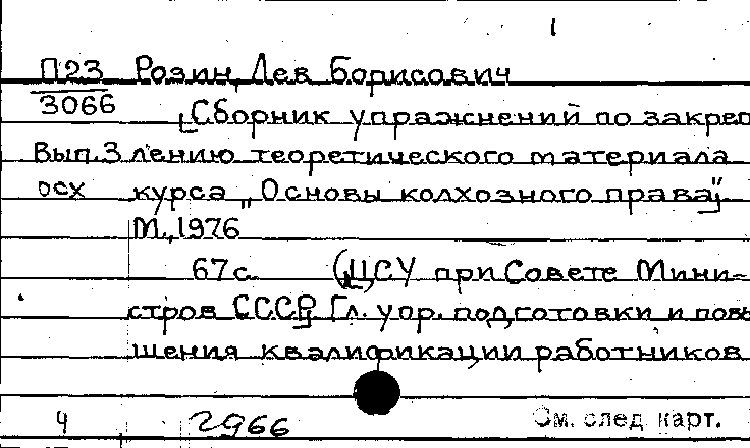 1
П23 Розин, Лев Борисович
3066 [Сборник упражнений по закреп
Вып.3 лению теоретического материала
осх курса „Основы колхозного права"]
М., 1976
67 с. (ЦСУ при Совете Мини-
стров СССР. Гл. упр. подготовки и повы
шения квалификации работников
4 2966 См. след карт.